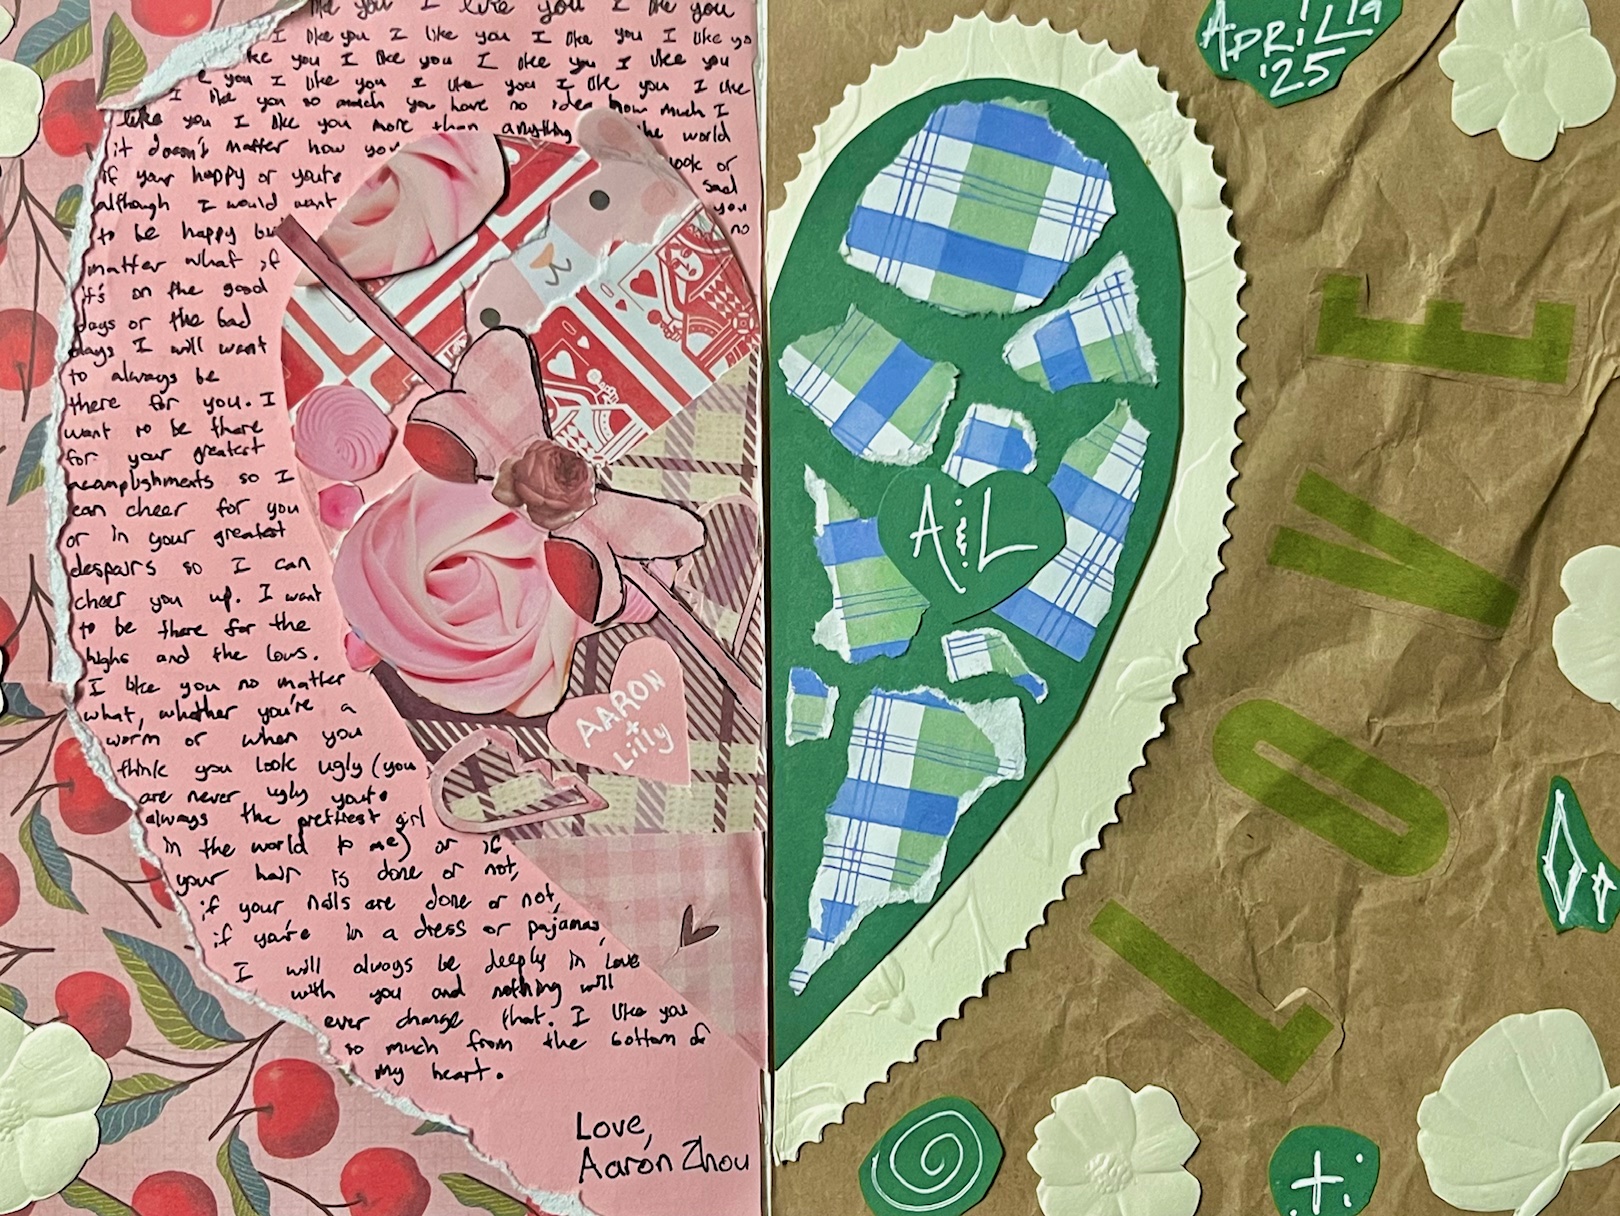 like you I like you I like you
I like you I like you I like you I like yo
like you I like you I like you I like you
e you I like you I like you I like you I like
I like you so much you have no idea how much I
like you I like you more than anything the world
it doesn't matter how you look or
if your happy or you're sad
although I would want you
to be happy bu no
matter what if
it's on the good
days or the bad
days I will want
to always be
there for you. I
want to be there
for your greatest
acamplishments so I
can cheer for you
or in your greatest
despairs so I can
cheer you up. I want
to be there for the
highs and the lows.
I like you no matter
what, whether you're a
worm or when you
think you look ugly (you
are never ugly your
always the prettiest girl
in the world to me) or if
your hair is done or not,
if your nails are done or not,
if you're in a dress or pajamas,
I will always be deeply in love
with you and nothing will
ever change that. I like you
so much from the bottom of
my heart.
Love,
Aaron Zhou
AARON
+
Lilly
A & L
APRIL 19
'25
LOVE